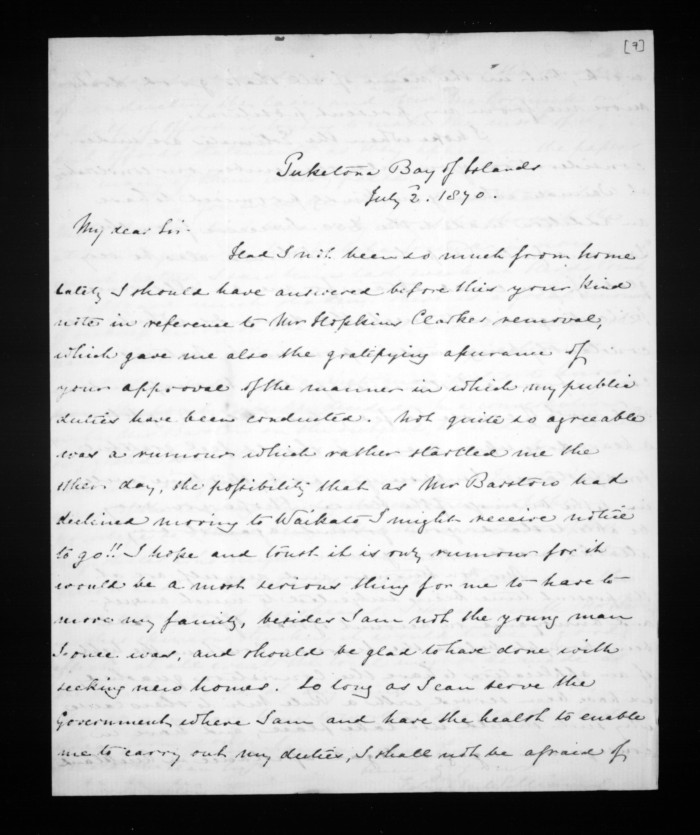 [9]
Puketona Bay of Islands
July 2. 1870.
My dear Sir.
Had I not been so much from home
lately I should have answered before this your kind
note in reference to Mr Hopkins Clarkes removal,
which gave me also the gratifying assurance of
your approval of the manner in which my public
duties have been conducted. Not quite so agreeable
was a rumour which rather startled me the
other day, the possibility that as Mr Barstow had
declined moving to Waikato I might receive notice
to go!! I hope and trust it is only rumour for it
would be a most serious thing for me to have to
move my family, besides I am not the young man
I once was, and should be glad to have done with
seeking new homes. So long as I can serve the
Government where I am and have the health to enable
me to carry out my duties, I shall not be afraid of